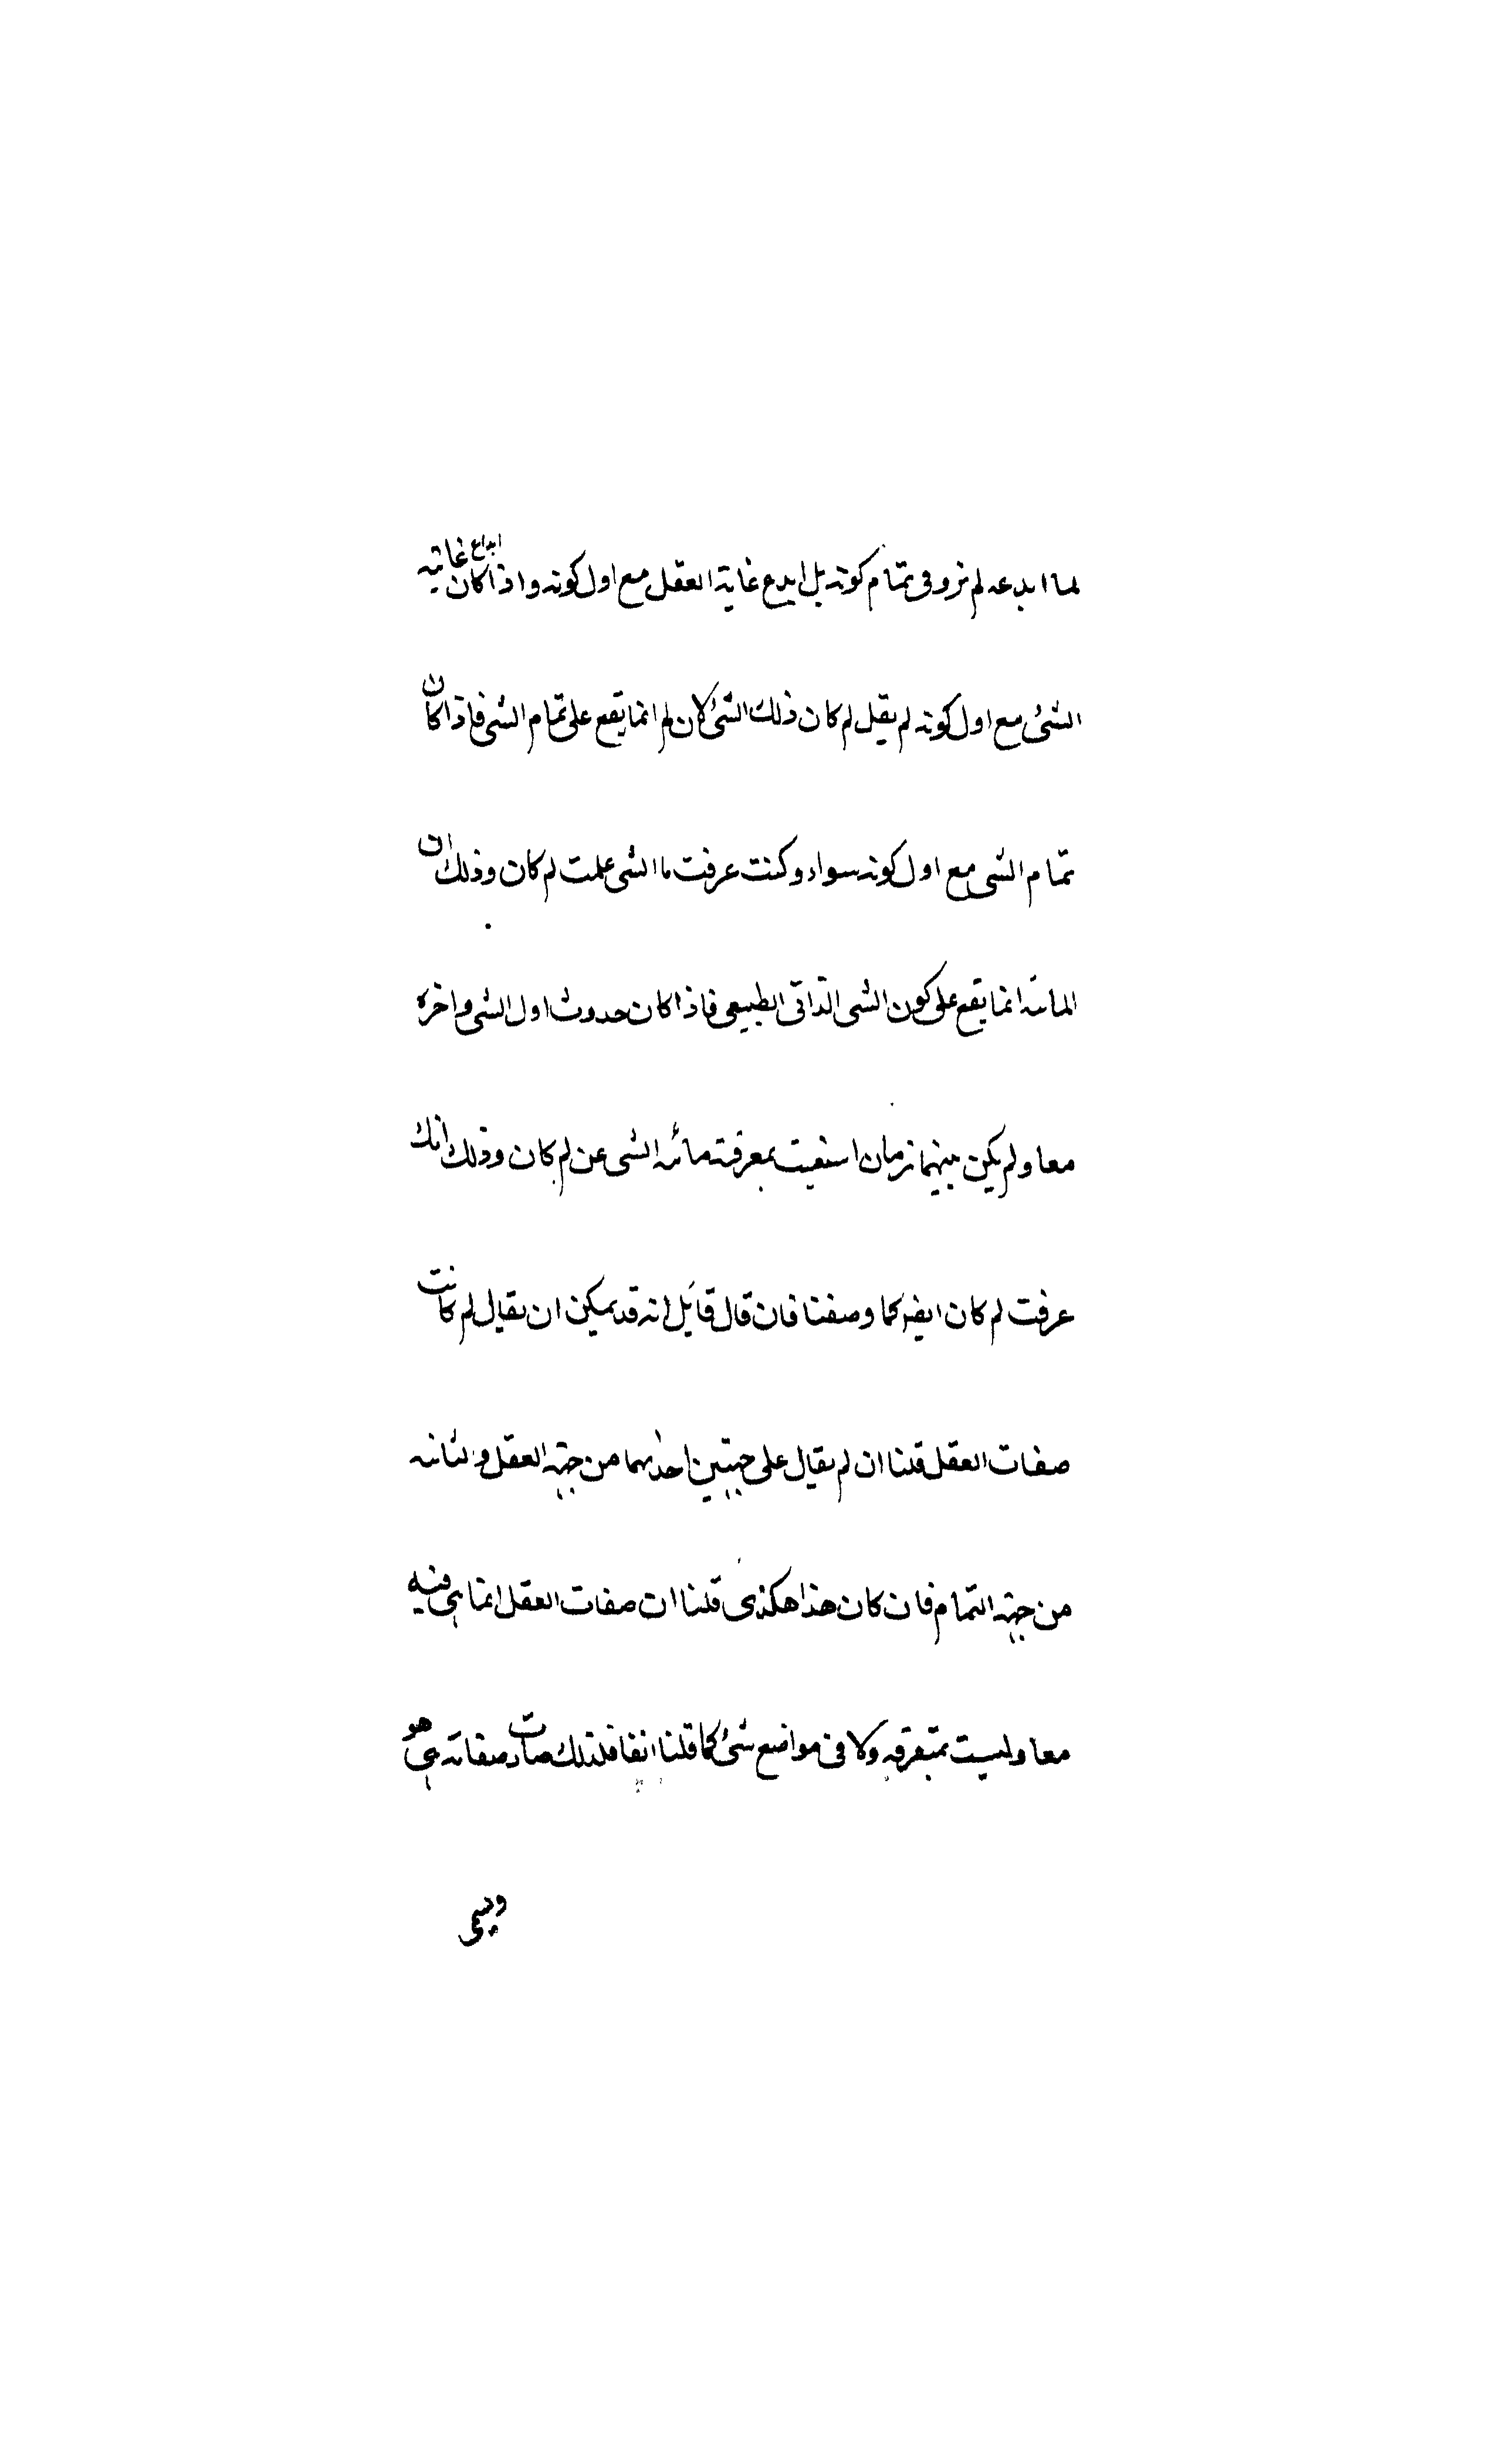 لما ابدعه لم يروى تمام كونه بل ابدع غاية العقل مع اول كونه واذا كان ابداع غايته
الشئ مع اول كونه لم يقل لم كان ذلك الشئ لان لم انما يقع على تمام الشى فاذا كان
تمام الشى مع اول كونه سواء وكنت عرفت ما الشى علمت لم كان وذلك ان
المائية انما يقع على كون الشى الذاتى الطبيعى فاذا كان حدوث اول الشى واخره
معا ولم يكن بينهما زمان استغنيت بمعرفته مائية الشى عن لم كان وذلك انك
عرفت لم كان ايضا كما وصفنا فان قال قائل انه قد يمكن ان يقال لم كانت
صفات العقل قلنا ان لم يقال على جهتين احدٰيهما من جهة العقل والثانية
من جهة التمام فان كان هذا هكذى قلنا ان صفات العقل انما هى فيه
معا وليست بمتفرقه ولا فى مواضع شئ كما قلنا انفا فلذلك صارت صفاته هى هو
ويسمى